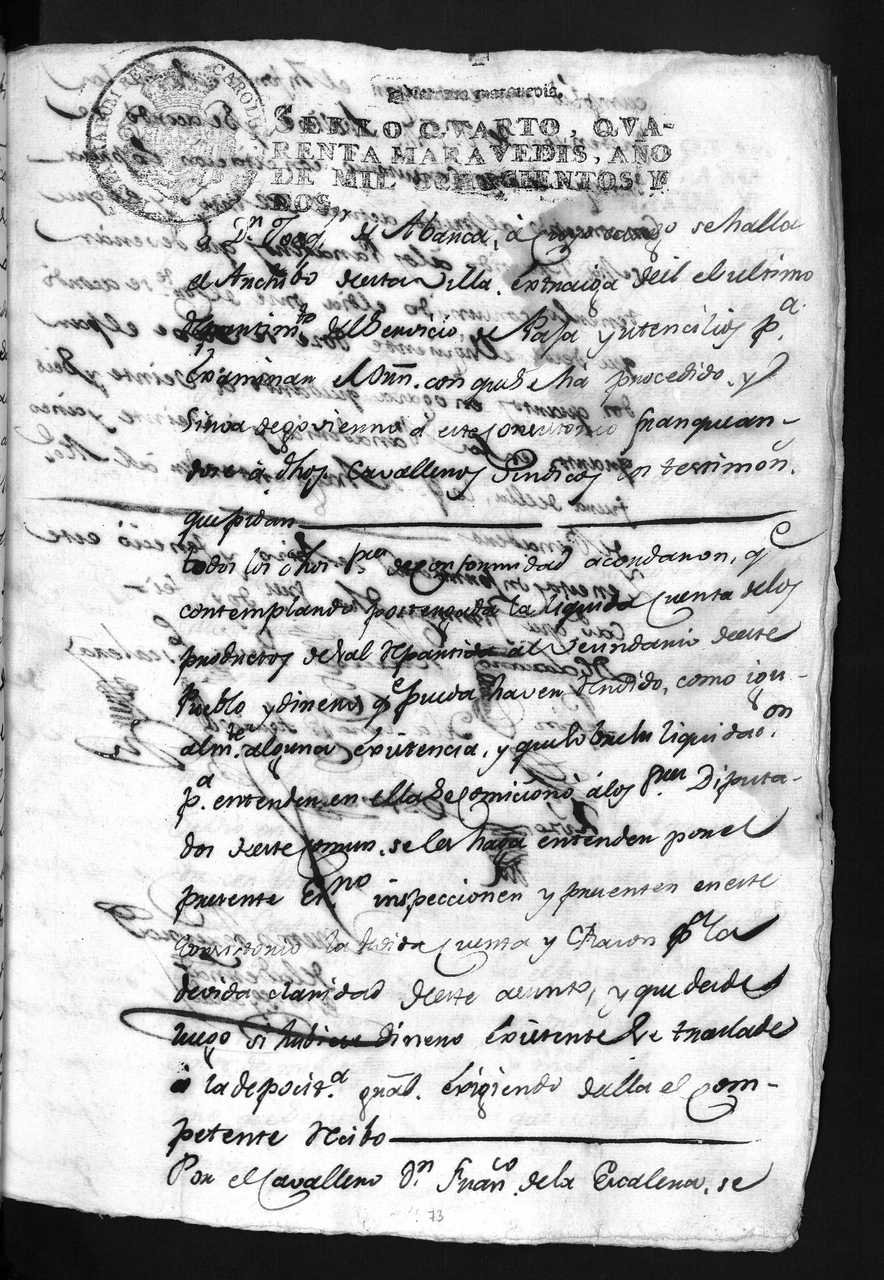 Quarenta maravedis.
SELLO QVARTO, QVA-
RENTA MARAVEDIS, AÑO
DE MIL OCHOCIENTOS Y
DOS.
Dn. y Abanca, á cuyo cargo se halla
el Archibo de esta Villa, extraiga de el el ultimo
repartimto. del Servicio de Paja y utencilios pa.
examinar el Orn. con que se ha procedido, y
sirva de govierno á este consistorio franquean-
dose á dhos. Cavalleros Sindicos los testimon.
que pidan
todos los dhos Sres. de conformidad acordaron, qe
contemplando postergada la liquida cuenta de los
productos de sal repartida al Vecindario de este
Pueblo y dineros qe pueda haver rendido, como igu-
almte. alguna existencia, y que lo liquidacon.
pa. entender en ella se comicionó á los Sres. Diputa-
dos de este comun, se les haga entender por el
presente Esno. inspeccionen y presenten en este
consistorio la devida cuenta y razon pa. la
devida claridad de este asunto, y que desde
luego si hubiese dinero existente se traslade
á la deposita. gral. exigiendo de ella el com-
petente recibo
Por el Cavallero Dn. Franco. de la Escalera, se
73